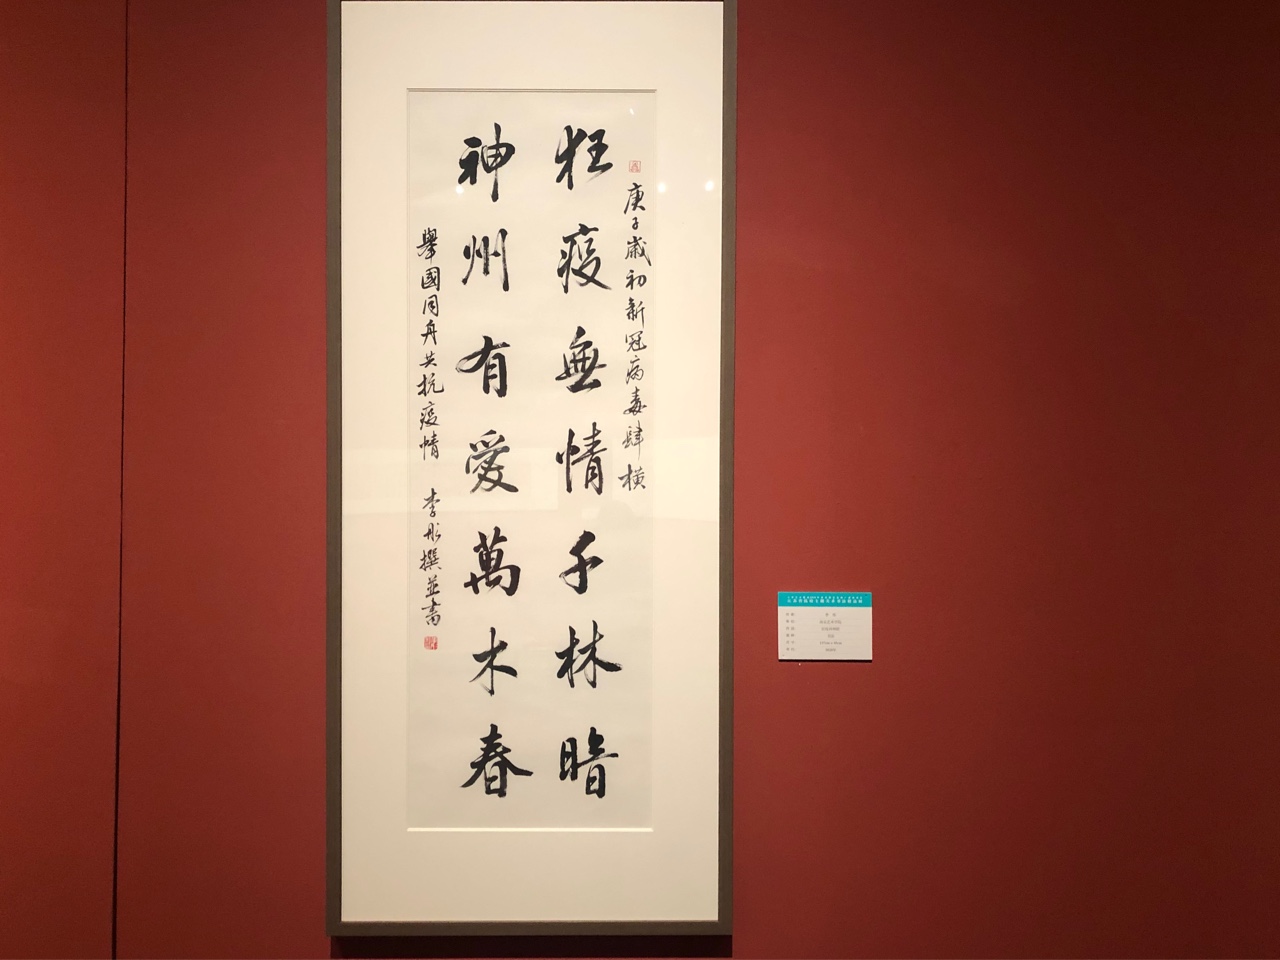 庚子歲初新冠病毒肆橫
狂疫無情千林暗
神州有愛萬木春
舉國同舟共抗疫情 李彤撰並書